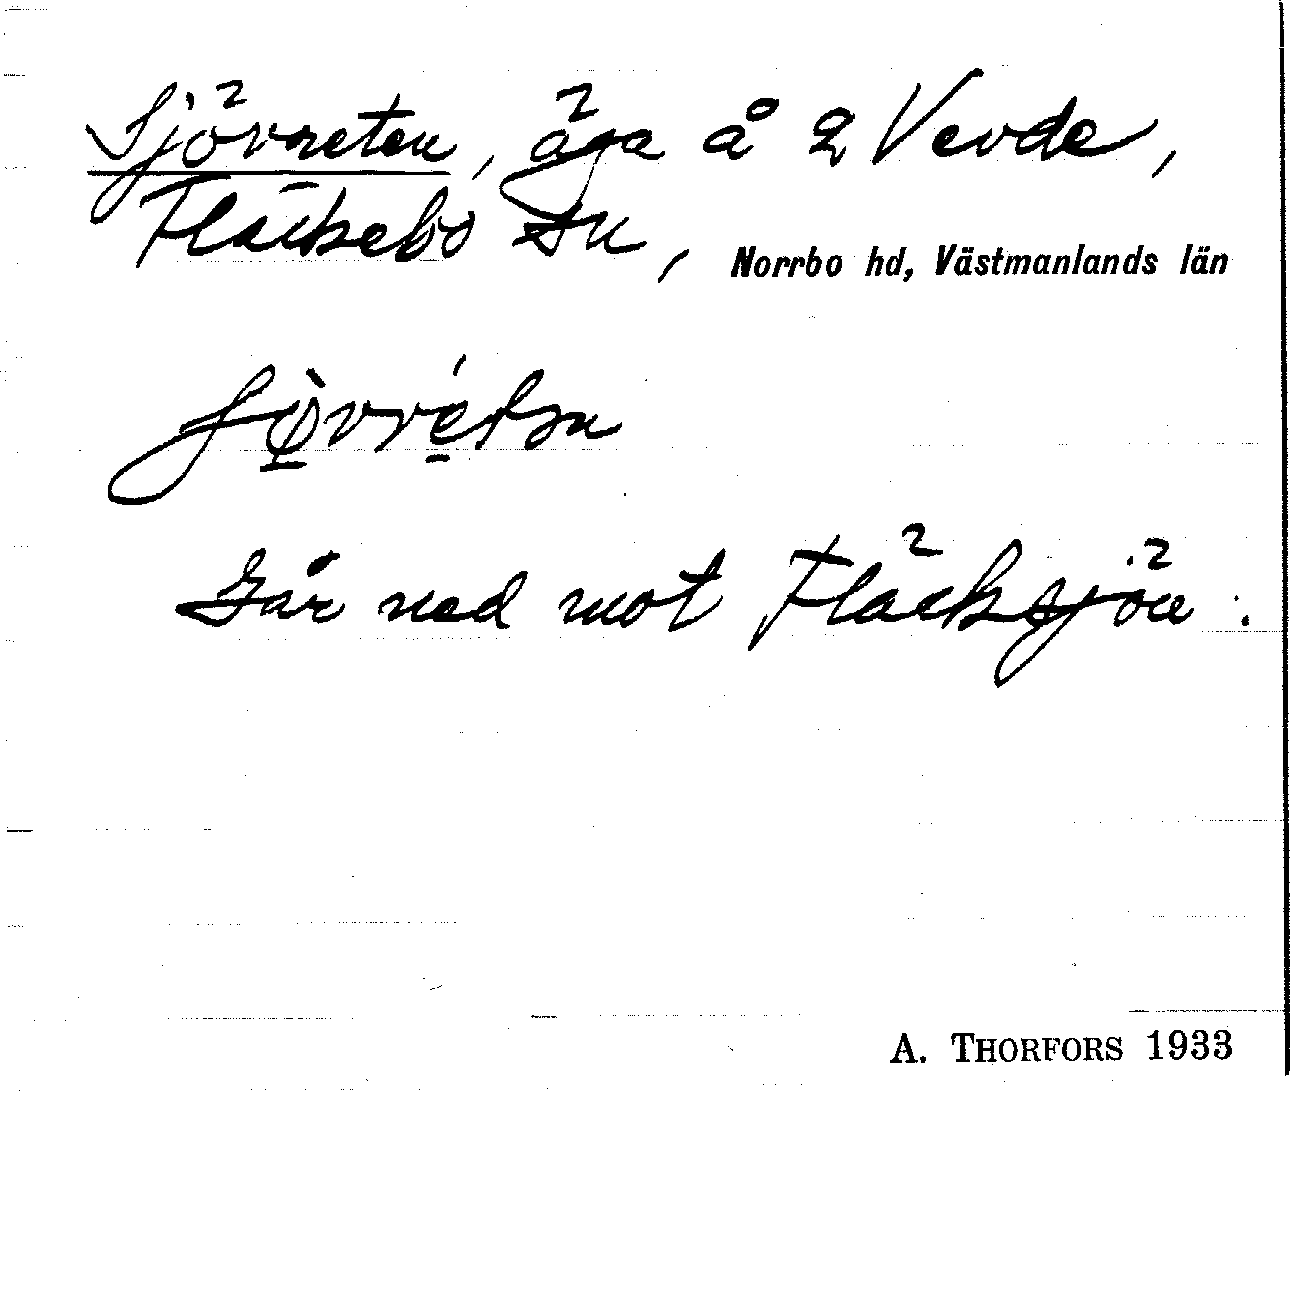 Sjövreten, äga å 2 Vevde,
Fläckebo sn, Norrbo hd, Västmanlands län
ʃø̀vrétṇ
Går ned mot Fläcksjön.
A. THORFORS 1933